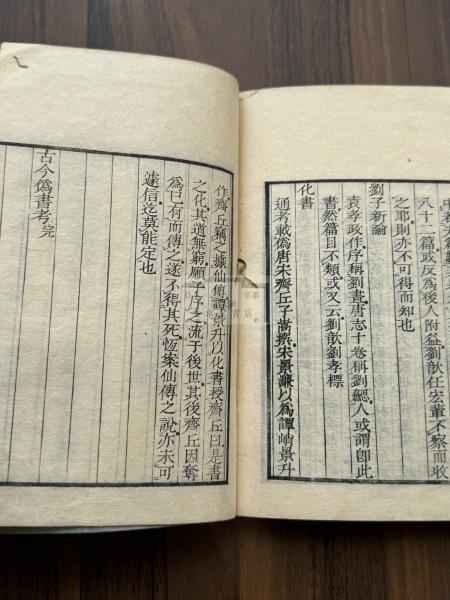 八十二篇或反爲後人附益劉歆任宏輩不察而收
之耶則亦不可得而知也
劉子新論
袁孝政作序稱劉晝唐志十卷稱劉勰人或謂卽此
書然篇目不類或又云劉歆劉孝標
化書
通考載爲唐宋齊丘子嵩撰宋景濂以爲譚峭景升
作齊丘竊之據仙傳譚景升以化書授齊丘曰是書
之化其道無窮願子序之流于後世其後齊丘因奪
爲已有而傳之遂不得其死恆案仙傳之說亦未可
遽信迄莫能定也
古今僞書考完